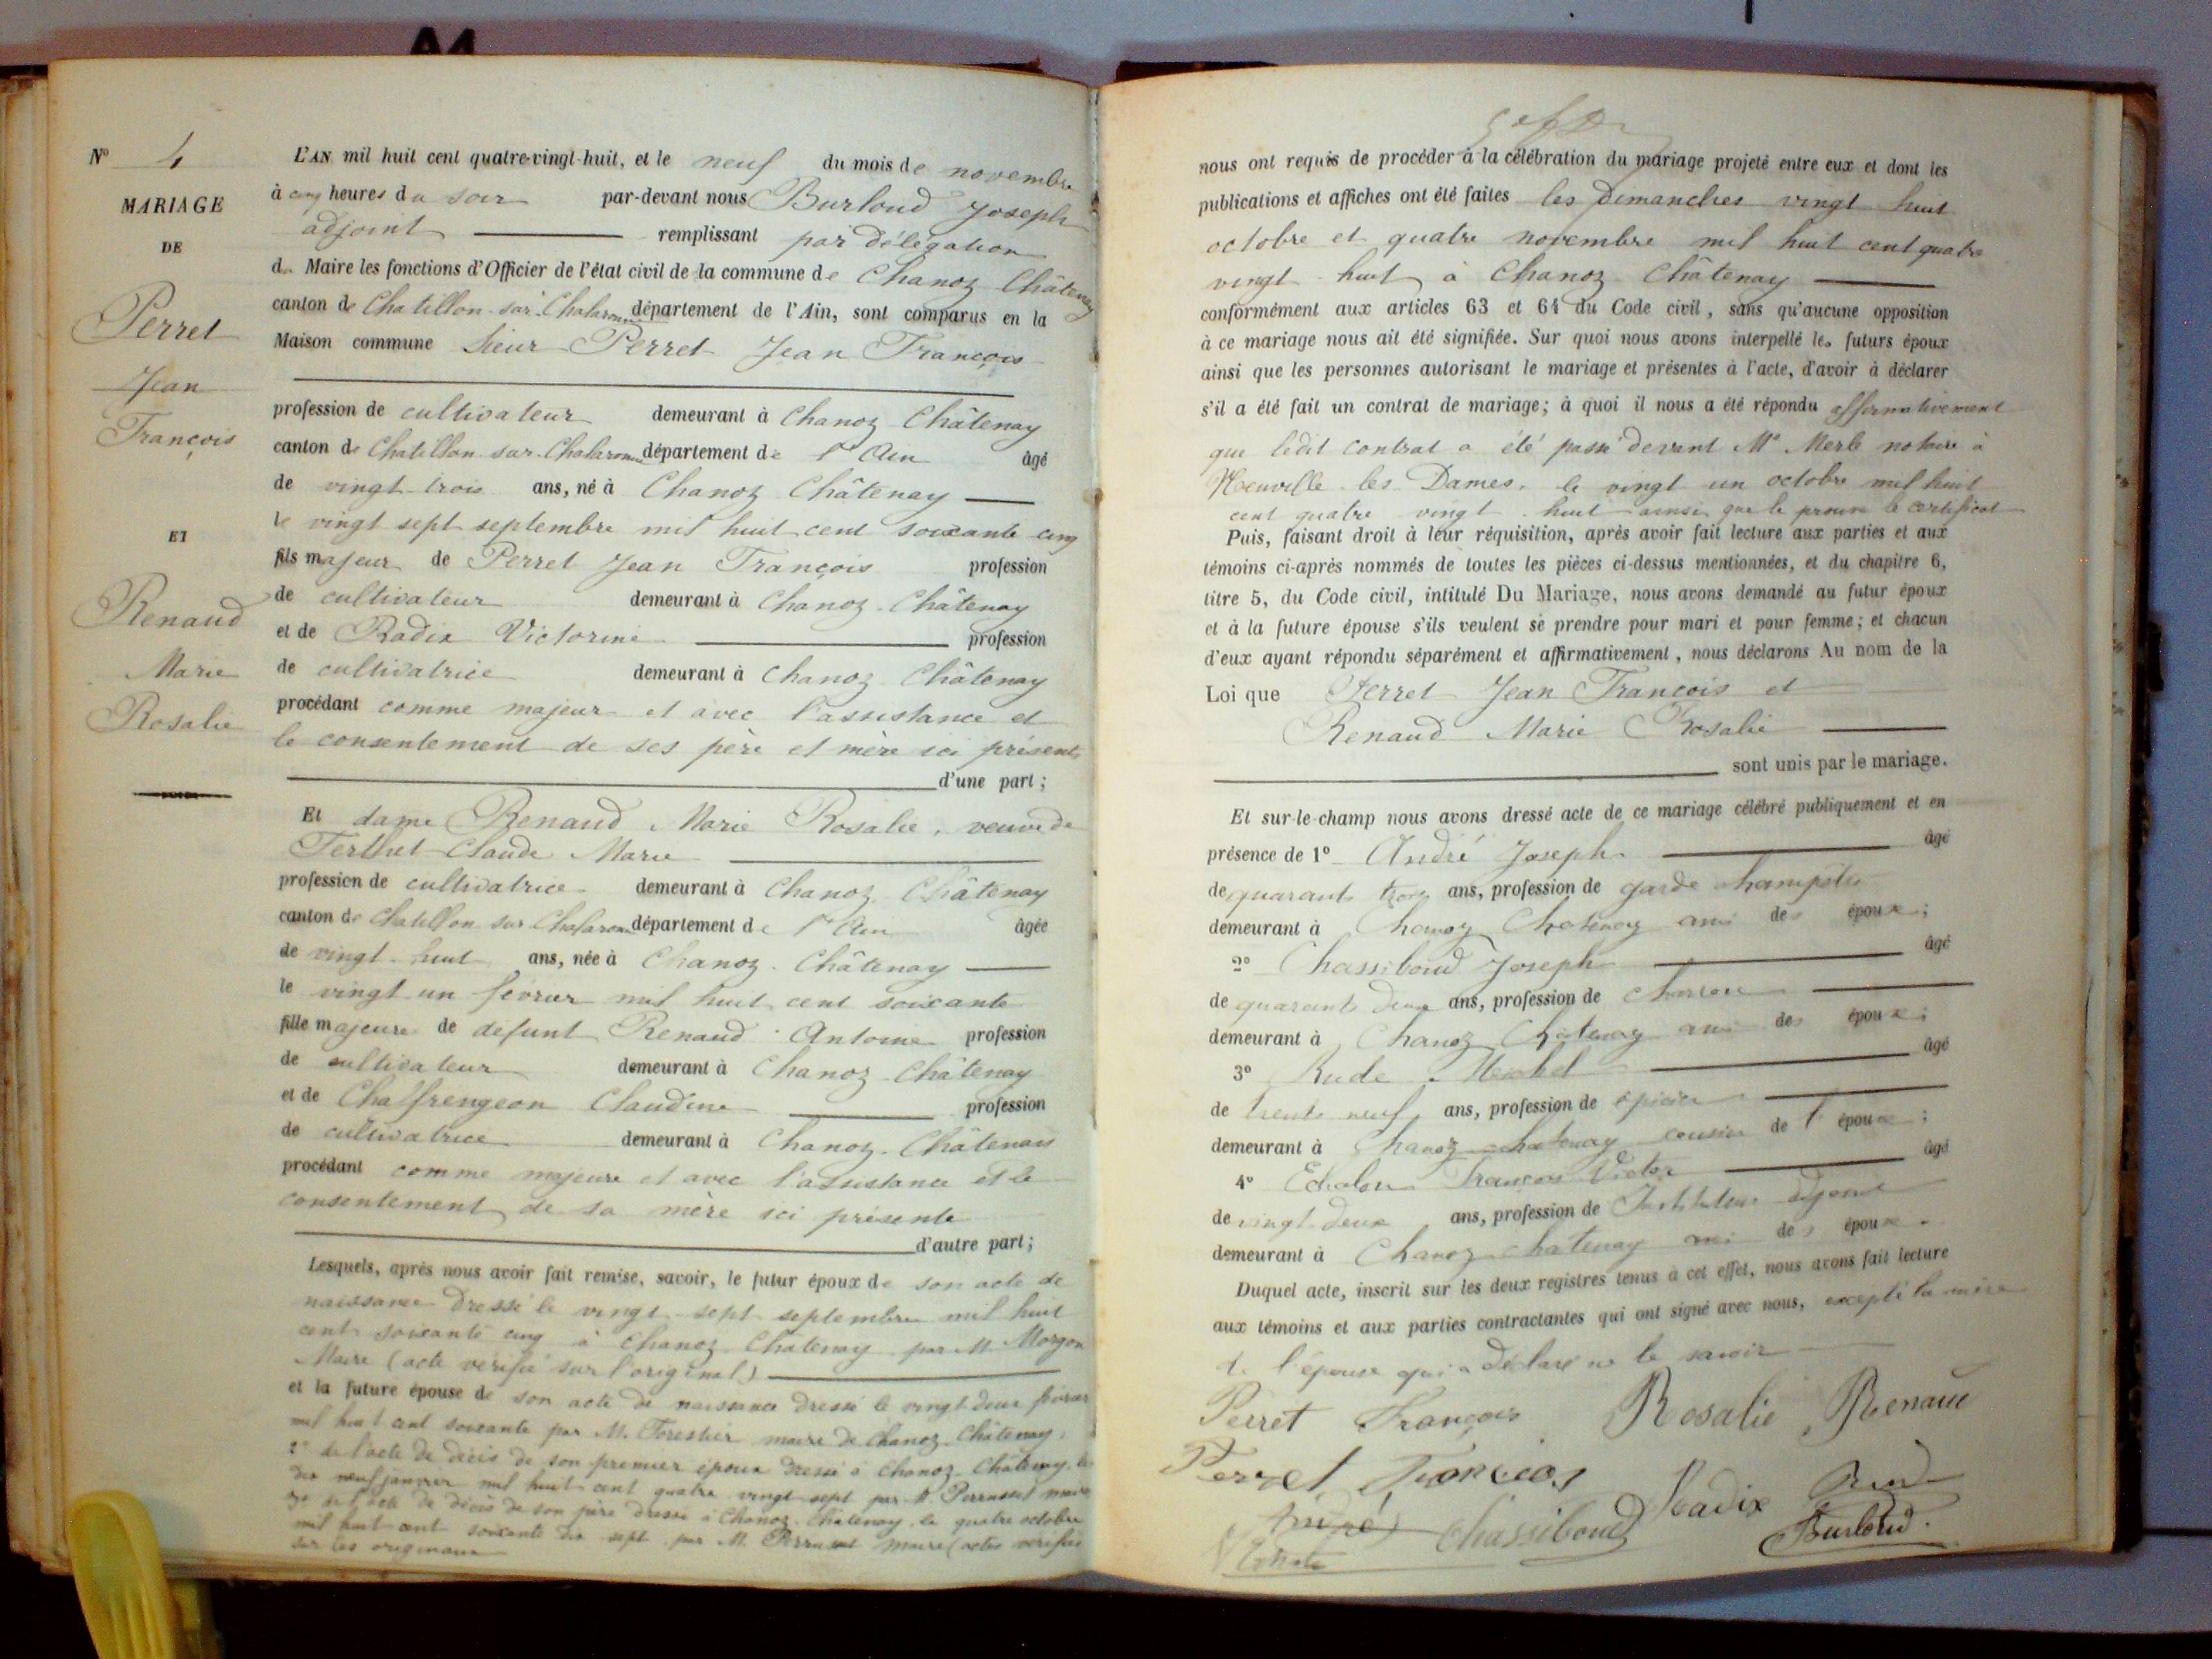 A4
N° 4
MARIAGE
DE
Perret
Jean
François
ET
Renaud
Marie
Rosalie
L'AN mil huit cent quatre-vingt-huit, et le neuf du mois de novembre
à cinq heures du soir par-devant nous Burloud Joseph
adjoint remplissant par délégation
du Maire les fonctions d'Officier de l'état civil de la commune de Chanoz Châtenay
canton de Chatillon-sur-Chalaronne département de l'Ain, sont comparus en la
Maison commune Sieur Perret Jean François
profession de cultivateur demeurant à Chanoz Châtenay
canton de Chatillon-sur-Chalaronne département de l'Ain âgé
de vingt-trois ans, né à Chanoz Châtenay
le vingt sept septembre mil huit cent soixante-cinq
fils majeur de Perret Jean François profession
de cultivateur demeurant à Chanoz-Châtenay
et de Radix Victorine profession
de cultivatrice demeurant à Chanoz Châtenay
procédant comme majeur et avec l'assistance et
le consentement de ses père et mère ici présents
d'une part;
Et dame Renaud Marie Rosalie, veuve de
Ferthet Claude Marie
profession de cultivatrice demeurant à Chanoz Châtenay
canton de Chatillon-sur-Chalaronne département de l'Ain âgée
de vingt-huit ans, née à Chanoz-Châtenay
le vingt un février mil huit cent soixante
fille majeure de défunt Renaud Antoine profession
de cultivateur demeurant à Chanoz-Châtenay
et de Chaffrengeon Claudine profession
de cultivatrice demeurant à Chanoz-Châtenay
procédant comme majeure et avec l'assistance et le
consentement de sa mère ici présente
d'autre part;
Lesquels, après nous avoir fait remise, savoir, le futur époux de son acte de
naissance dressé le vingt-sept septembre mil huit
cent soixante cinq à Chanoz-Châtenay par M. Morgon
Maire (acte vérifié sur l'original)
et la future épouse de son acte de naissance dressé le vingt deux février
mil huit cent soixante par M. Forestier maire de Chanoz-Châtenay,
2° de l'acte de décès de son premier époux dressé à Chanoz-Châtenay le
dix neuf janvier mil huit cent quatre vingt sept par M. Perrusset maire
3° de l'acte de décès de son père dressé à Chanoz-Châtenay le quatre octobre
mil huit cent soixante dix sept par M. Perrusset maire (actes vérifiés
sur les originaux
nous ont requis de procéder à la célébration du mariage projeté entre eux et dont les
publications et affiches ont été faites les Dimanches vingt huit
octobre et quatre novembre mil huit cent quatre
vingt-huit à Chanoz-Châtenay
conformément aux articles 63 et 64 du Code civil, sans qu'aucune opposition
à ce mariage nous ait été signifiée. Sur quoi nous avons interpellé les futurs époux
ainsi que les personnes autorisant le mariage et présentes à l'acte, d'avoir à déclarer
s'il a été fait un contrat de mariage; à quoi il nous a été répondu affirmativement
que ledit contrat a été passé devant Me Merle notaire à
Neuville-les-Dames, le vingt un octobre mil huit
cent quatre vingt huit ainsi que le prouve le certificat
Puis, faisant droit à leur réquisition, après avoir fait lecture aux parties et aux
témoins ci-après nommés de toutes les pièces ci-dessus mentionnées, et du chapitre 6,
titre 5, du Code civil, intitulé Du Mariage, nous avons demandé au futur époux
et à la future épouse s'ils veulent se prendre pour mari et pour femme; et chacun
d'eux ayant répondu séparément et affirmativement, nous déclarons Au nom de la
Loi que Perret Jean François et
Renaud Marie Rosalie
sont unis par le mariage.
Et sur-le-champ nous avons dressé acte de ce mariage célébré publiquement et en
présence de 1° André Joseph âgé
de quarante trois ans, profession de garde champêtre
demeurant à Chanoz Chatenay ami des époux;
2° Chassiboud Joseph âgé
de quarante deux ans, profession de charron
demeurant à Chanoz Chatenay ami des époux;
3° Rude Michel âgé
de trente neuf ans, profession de épicier
demeurant à Chanoz Chatenay cousin de l'époux;
4° François Victor âgé
de vingt-deux ans, profession de Instituteur adjoint
demeurant à Chanoz-chatenay ami des époux.
Duquel acte, inscrit sur les deux registres tenus à cet effet, nous avons fait lecture
aux témoins et aux parties contractantes qui ont signé avec nous, excepté la mère
de l'épouse qui a déclaré ne le savoir
Perret François Rosalie Renaud
Perret François Radix Rude
André Chassiboud Burloud.